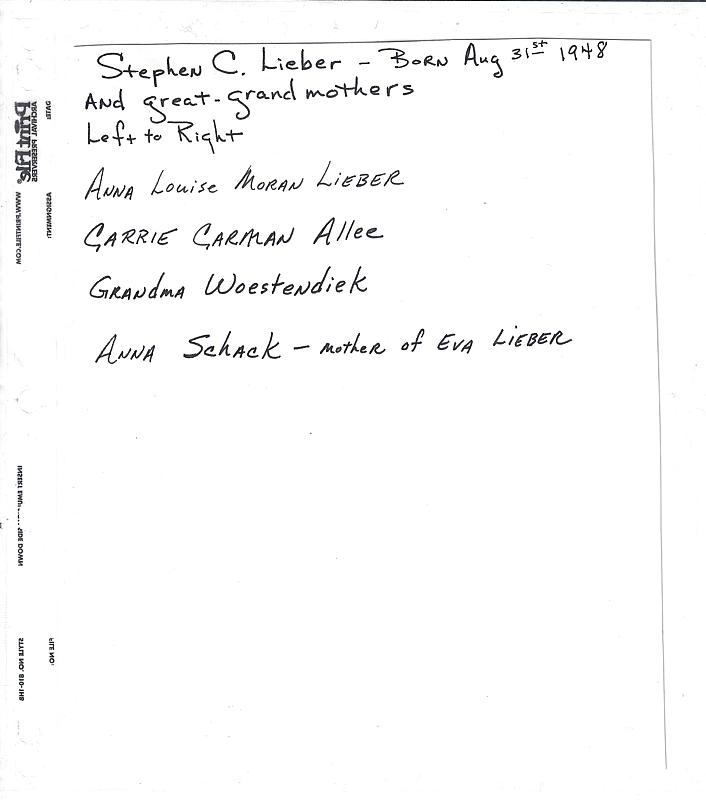 Stephen C. Lieber - Born Aug 31st 1948
And great-grandmothers
Left to Right
Anna Louise Moran Lieber
Carrie Carman Allee
Grandma Woestendiek
Anna Schack - mother of Eva Lieber
DATE:
ASSIGNMENT:
FILE NO:
ARCHIVAL PRESERVERS
Print File®
WWW.PRINTFILE.COM
INSERT EMUL SIDE DOWN
STYLE NO. 810-1HB